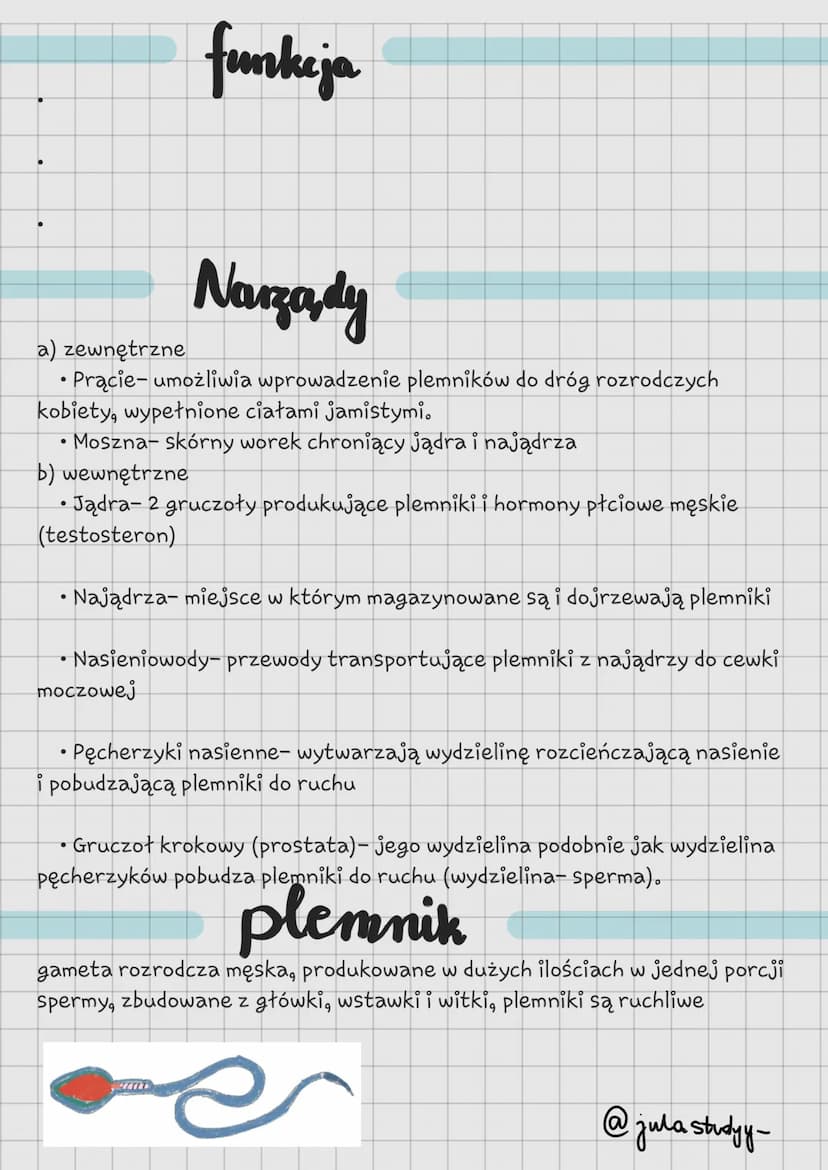 funkcja
•
•
•
Narządy
a) zewnętrzne
• Prącie- umożliwia wprowadzenie plemników do dróg rozrodczych
kobiety, wypełnione ciałami jamistymi.
• Moszna- skórny worek chroniący jądra i najądrza
b) wewnętrzne
• Jądra- 2 gruczoły produkujące plemniki i hormony płciowe męskie
(testosteron)
• Najądrza- miejsce w którym magazynowane są i dojrzewają plemniki
• Nasieniowody- przewody transportujące plemniki z najądrzy do cewki
moczowej
• Pęcherzyki nasienne- wytwarzają wydzielinę rozcieńczającą nasienie
i pobudzającą plemniki do ruchu
• Gruczoł krokowy (prostata)- jego wydzielina podobnie jak wydzielina
pęcherzyków pobudza plemniki do ruchu (wydzielina- sperma).
plemnik
gameta rozrodcza męska, produkowane w dużych ilościach w jednej porcji
spermy, zbudowane z główki, wstawki i witki, plemniki są ruchliwe
@julastudyy_